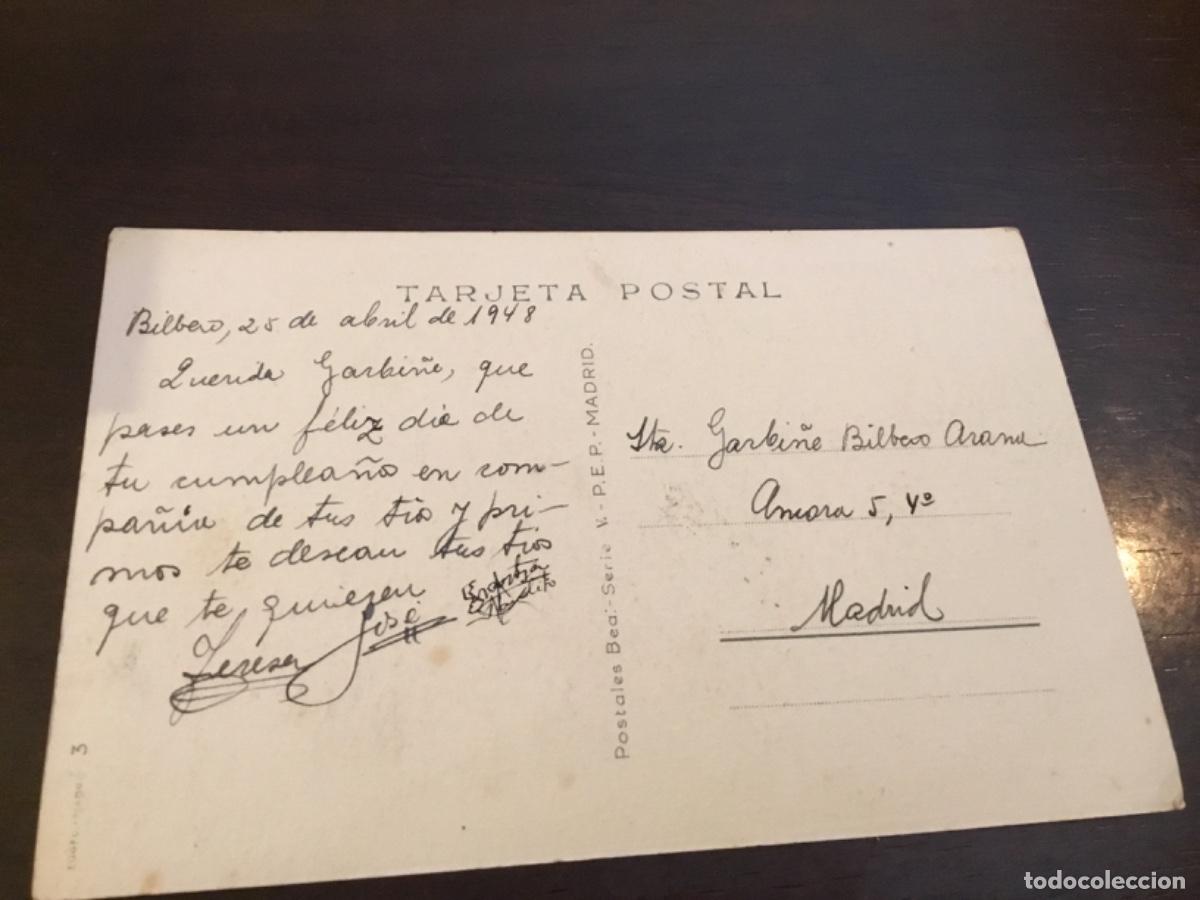 TARJETA POSTAL
Bilbao, 25 de abril de 1948
Querida Garbiñe, que
pases un féliz día de
tu cumpleaños en com-
pañia de tus tíos y pri-
mos te desean tus tíos
que te quieren
Teresa José
Postales Bea:-Serie V.-P.E.P.-MADRID.
Sta. Garbiñe Bilbao Arana
5, 4º
Madrid
3
todocoleccion